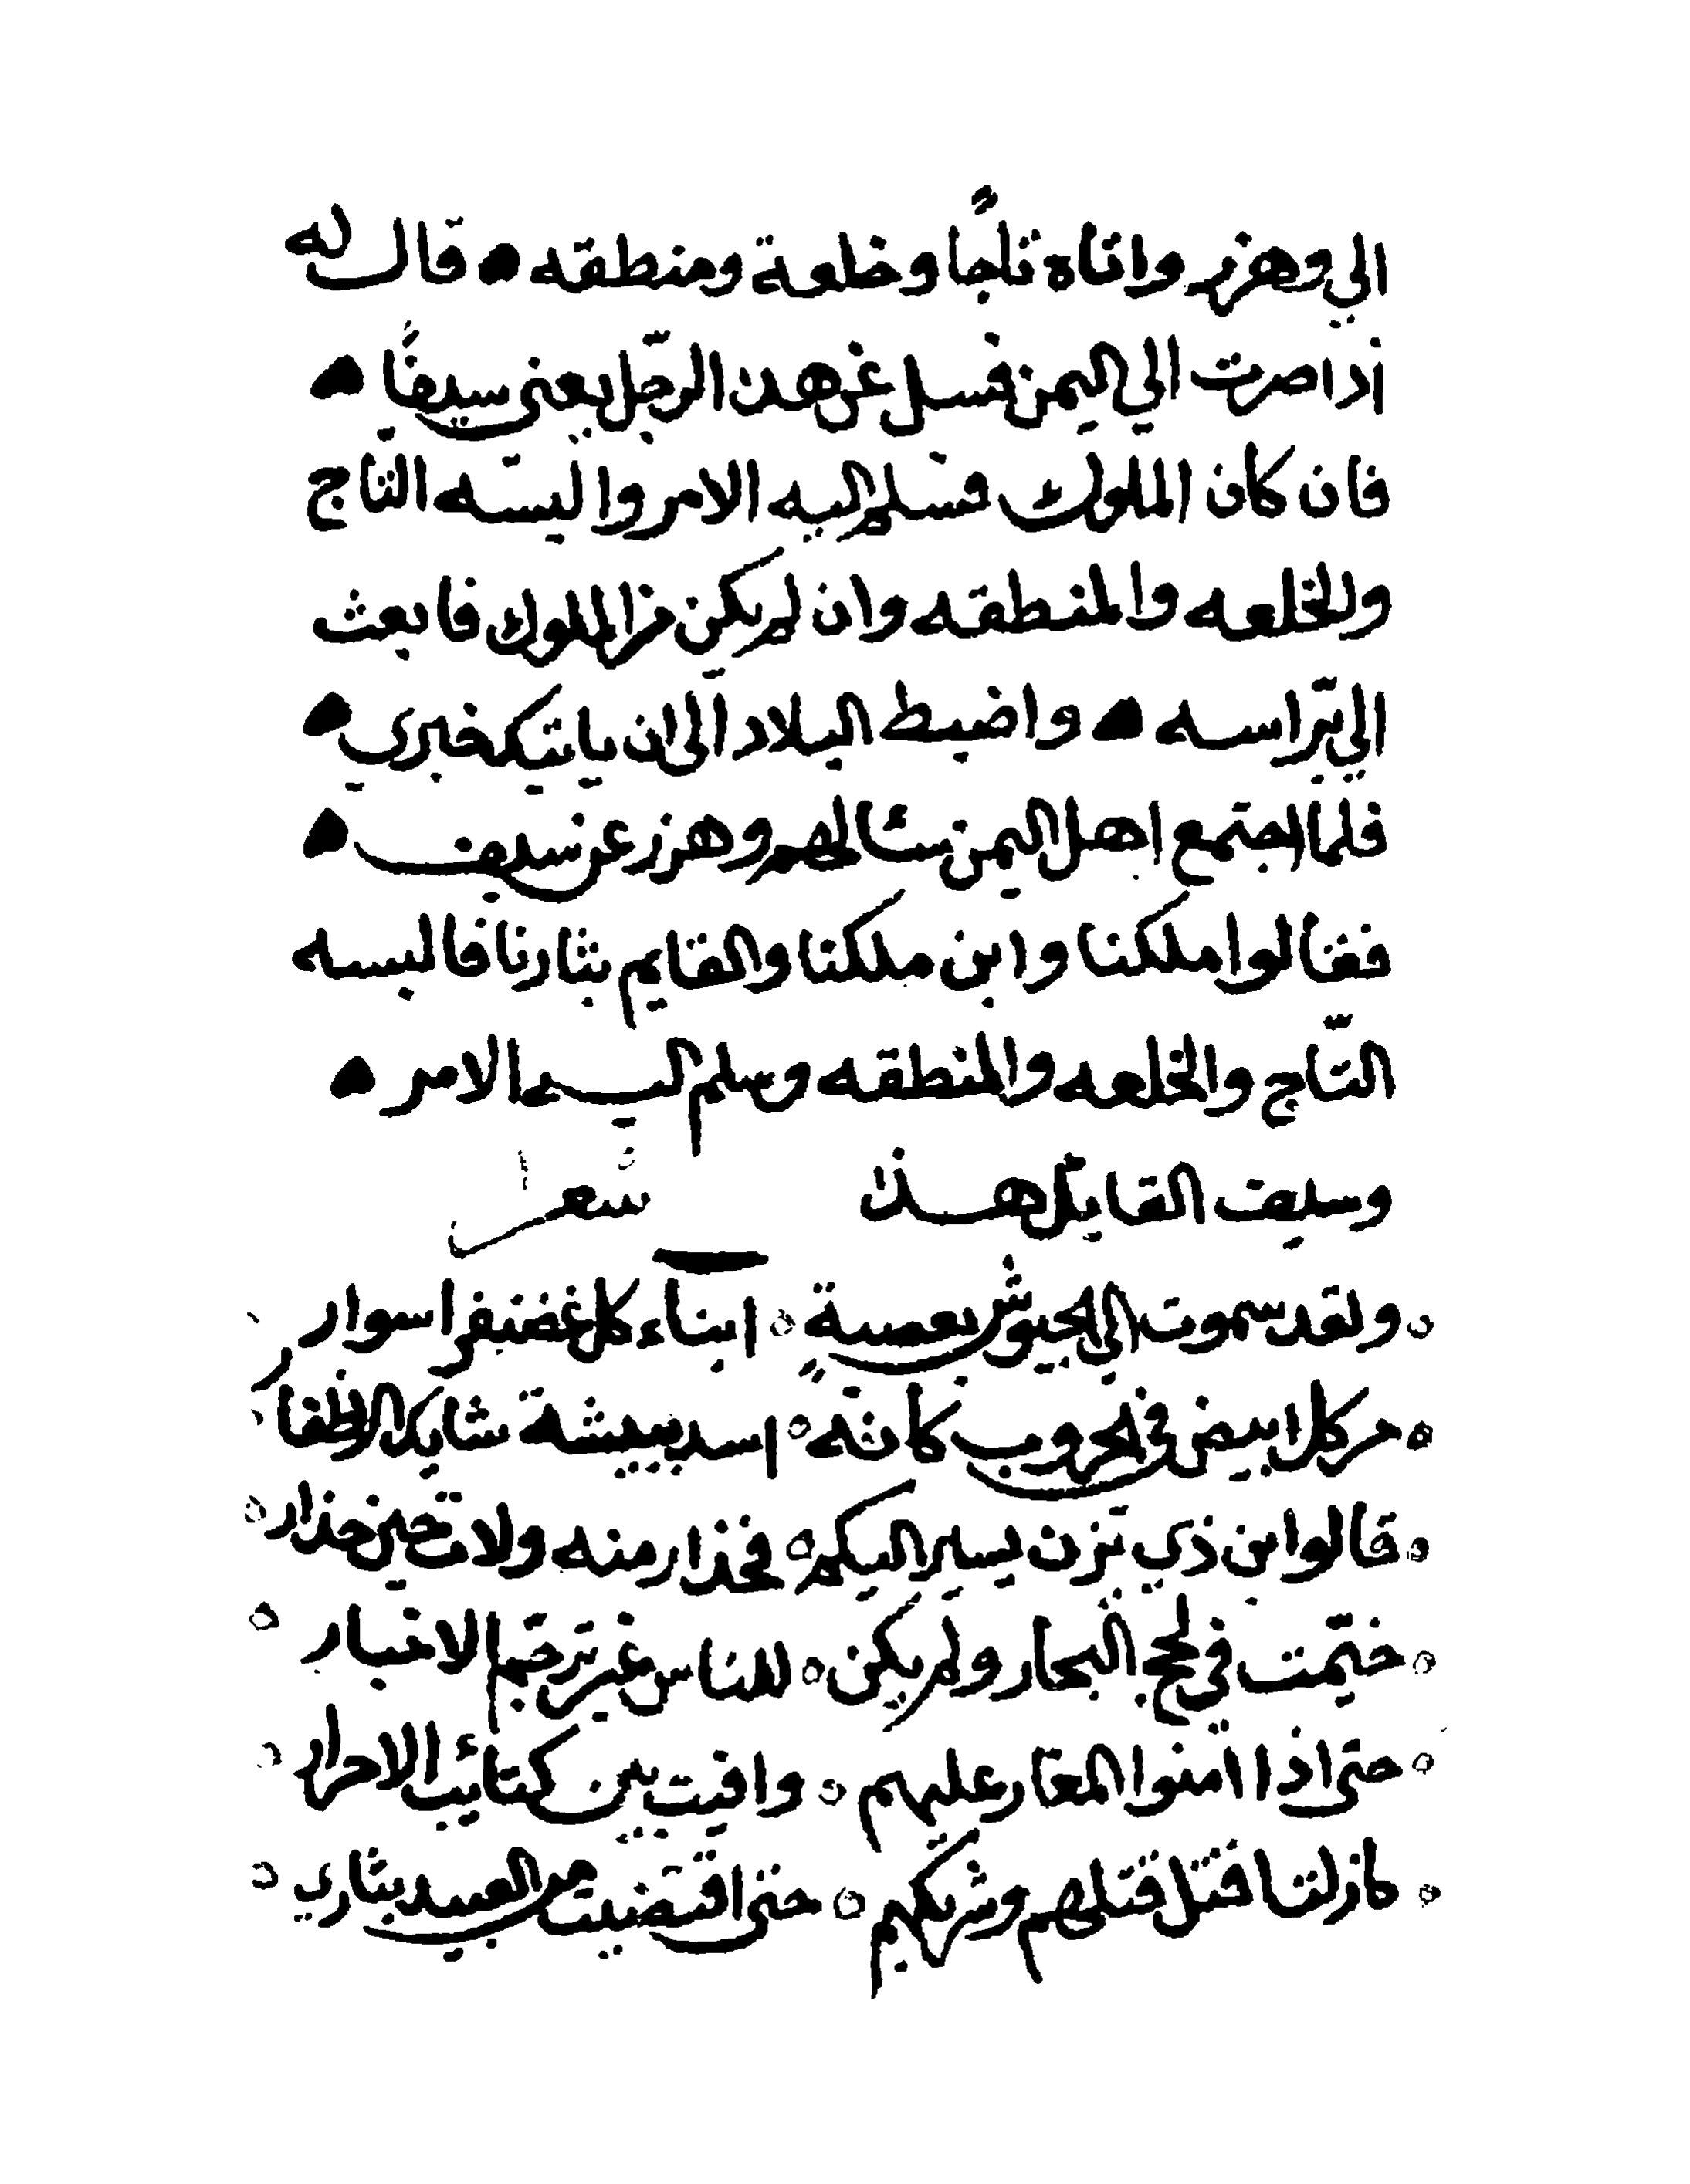 الي وهرز واتاه تاجًا وخلعة ومنطقه قال له
اذا صرت الي اليمن فسل عن هذا الرجل يعني سيفًا
فان كان الملوك فسلم اليه الامر والبسه التاج
والخلعه والمنطقه وان لم يكن من الملوك فابعث
الي براسه واضبط البلاد الى ان ياتيك خبري
فلما اجتمع اهل اليمن سالهم وهرز عن سيف
فقالوا ملكنا وابن ملكنا والقايم بثارنا فالبسه
التاج والخلعه والمنطقه وسلم اليه الامر
وسيف القايل هذا شعرا
ولقد سموت الي الحبوش بعصبةٍ ابناء كل غضنفر اسوار
من كل ابيض في الحروب كانه اسد ببيشة شابك الاظفار
قالوا ابن ذي يزن يسير اليكم فحذار منه ولات حين حذار
ختمت في لجج البحار ولم يكن للناس غير الاخبار
حتى اذا امنوا المغار عليهم وافيت بين كتائب الاحرار
مازلتا قتل قتلهم وشريكهم حتى اقتضيت من العبيد بثاري